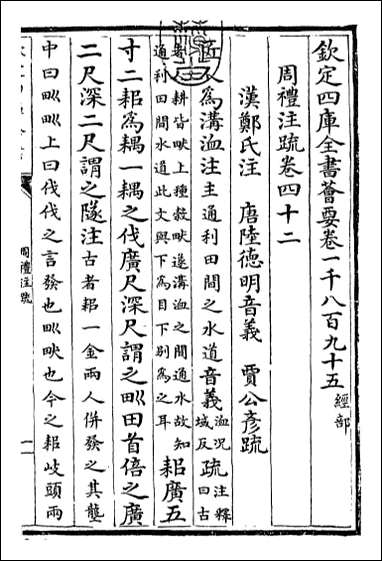 欽定四庫全書薈要卷一千八百九十五 經部
周禮注疏卷四十二
漢鄭氏注 唐陸德明音義 賈公彥疏
匠人為溝洫注主通利田間之水道音義洫況域反疏注釋曰古
者耕皆畎上種穀畎遂溝洫之間通水故知
通利田間水道此文與下為目下別為之耳 耜廣五
寸二耜為耦一耦之伐廣尺深尺謂之𤰝田首倍之廣
二尺深二尺謂之隧注古者耜一金兩人併發之其壟
中曰𤰝𤰝上曰伐伐之言發也𤰝畎也今之耜岐頭兩
周禮注疏
一